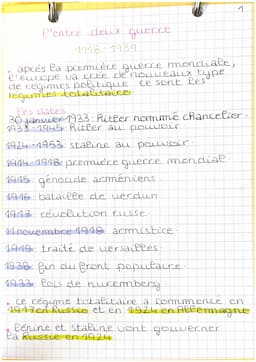 1
L'entre deux guerre
1918-1939
• après la première guerre mondiale,
l'europe va crée de nouveaux type
de régimes politique. ce sont les
régimes totalitaire
Les dates
30 janvier 1933: Hitler nommé chancelier.
1933-1945: Hitler au pouvoir
1924-1953 staline au pouvoir
1914-1918 première guerre mondial
1915 génocide arméniens
1916 bataille de verdun
1917 révolution russe
11 novembre 1918 armistice
1919 traité de versailles
1938 fin du front populaire
lois de nuremberg
• ce régime totalitaire a commencé en
1917 en Russie et en 1924 en Allemagne
• Lénine et staline vont gouverner
la Russie en 1924